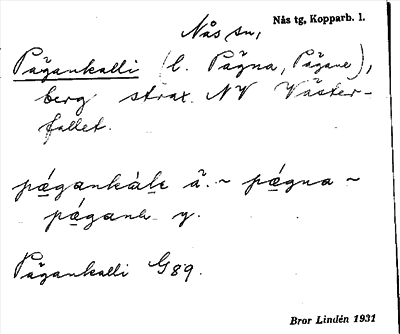 Nås sn,
Nås tg, Kopparb. l.
Pågankalli (l. Pågna, Pågane),
berg strax NV Väster-
fallet.
pǻgankàlı å. ~ pǻgna ~
pǻgana y.
Pågankalli G89.
Bror Lindén 1931